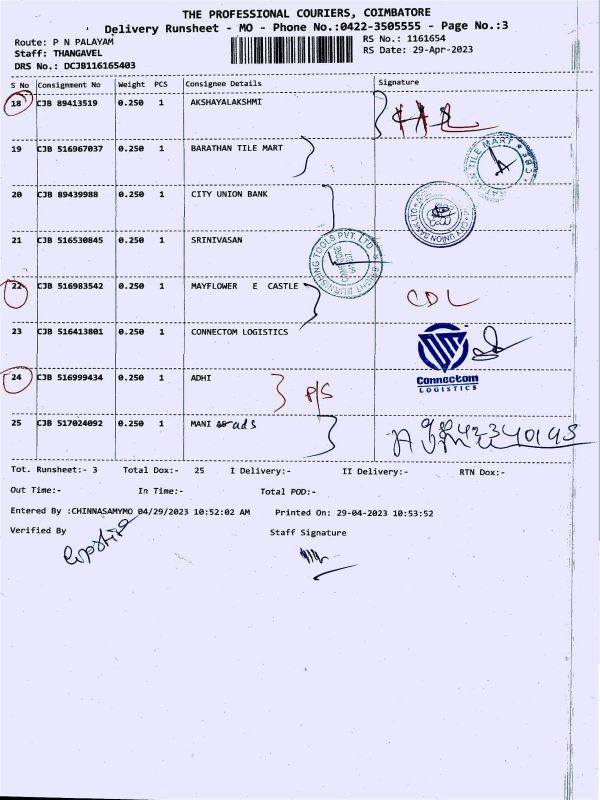 THE PROFESSIONAL COURIERS, COIMBATORE
Delivery Runsheet - MO - Phone No.:0422-3505555 - Page No.:3
Route: P N PALAYAM
RS No.: 1161654
Staff: THANGAVEL
RS Date: 29-Apr-2023
DRS No.: DCJB116165403
S No Consignment No Weight PCS Consignee Details Signature
18 CJB 89413519 0.250 1 AKSHAYALAKSHMI
19 CJB 516967037 0.250 1 BARATHAN TILE MART
20 CJB 89439988 0.250 1 CITY UNION BANK
21 CJB 516530845 0.250 1 SRINIVASAN
22 CJB 516983542 0.250 1 MAYFLOWER E CASTLE CDL
23 CJB 516413801 0.250 1 CONNECTOM LOGISTICS
Connectom
LOGISTICS
24 CJB 516999434 0.250 1 ADHI P/S
25 CJB 517024092 0.250 1 MANI ads
Tot. Runsheet:- 3 Total Dox:- 25 I Delivery:- II Delivery:- RTN Dox:-
Out Time:- In Time:- Total POD:-
Entered By :CHINNASAMYMO 04/29/2023 10:52:02 AM Printed On: 29-04-2023 10:53:52
Verified By Staff Signature